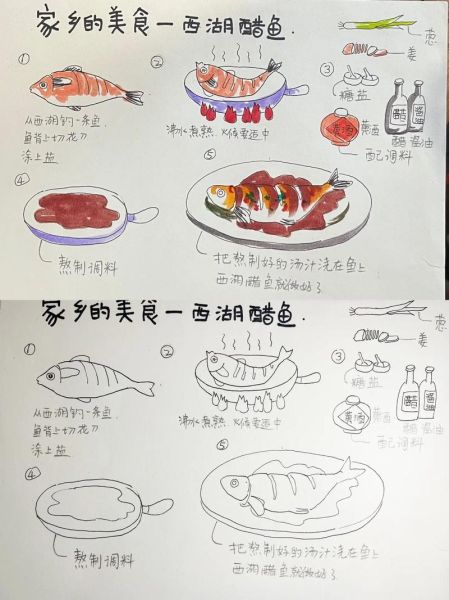 家乡的美食—西湖醋鱼.
葱
姜
①
从西湖钓一条鱼.
鱼背上切花刀
涂上盐
②
沸水煮熟.火候要适中
③
糖盐
黄酒
黄酒
醋
酱油
醋
配己调料
④
熬制调料
⑤
把熬制好的汤汁浇在鱼上
西湖醋鱼就做好了
家乡的美食—西湖醋鱼.
葱
姜
①
从西湖钓一条鱼.
鱼背上切花刀
涂上盐
②
沸水煮熟.火候要适中
③
糖盐
黄酒
黄酒
醋
酱油
醋
配己调料
④
熬制调料
⑤
把熬制好的汤汁浇在鱼上
西湖醋鱼就做好了